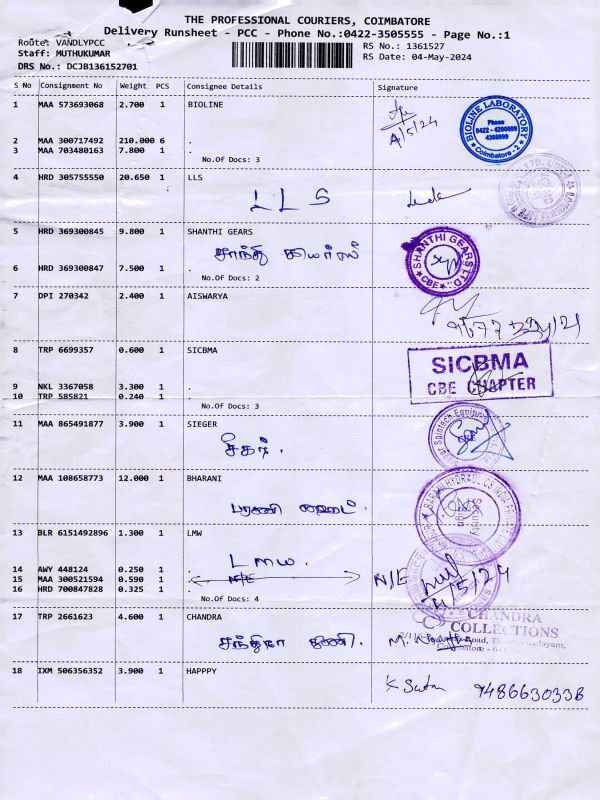 THE PROFESSIONAL COURIERS, COIMBATORE
Delivery Runsheet - PCC - Phone No.:0422-3505555 - Page No.:1
Route: VANDLYPCC
RS No.: 1361527
Staff: MUTHUKUMAR
RS Date: 04-May-2024
DRS No.: DCJB136152701
S No Consignment No Weight PCS Consignee Details Signature
1 MAA 573693068 2.700 1 BIOLINE
4/5/24
BIOLINE LABORATORY
Phone
0422 - 4200099
4360099
Coimbatore - 2
2 MAA 300717492 210.000 6 .
3 MAA 703480163 7.800 1 .
No.Of Docs: 3
4 HRD 305755550 20.650 1 LLS
LLS
5 HRD 369300845 9.800 1 SHANTHI GEARS
சாந்தி கியர்ஸ்
SHANTHI GEARS LTD.,
CBE
6 HRD 369300847 7.500 1 .
No.Of Docs: 2
7 DPI 270342 2.400 1 AISWARYA
8 TRP 6699357 0.600 1 SICBMA
SICBMA
CBE CHAPTER
9 NKL 3367058 3.300 1 .
10 TRP 585821 0.240 1 .
No.Of Docs: 3
11 MAA 865491877 3.900 1 SIEGER
சீகர்.
12 MAA 108658773 12.000 1 BHARANI
பரணி ஹைட்.
13 BLR 6151492896 1.300 1 LMW
LMW.
14 AWY 448124 0.250 1 .
15 MAA 300521594 0.590 1 N/E
N/E
4/5/24
16 HRD 700847828 0.325 1 .
No.Of Docs: 4
17 TRP 2661623 4.600 1 CHANDRA
CHANDRA
COLLECTIONS
சந்திரா துணி.
18 IXM 506356352 3.900 1 HAPPPY
9486630338